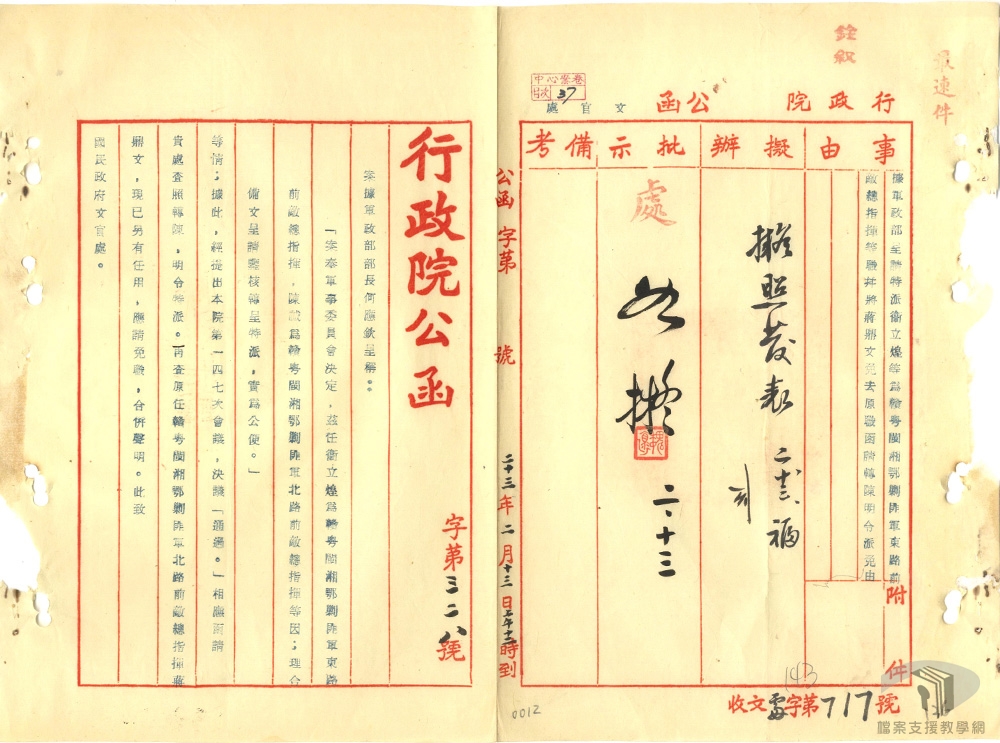 最速件
銓敘
行政院公函
文官處
中心案卷
目次 37
事由
擬辦
批示
備考
據軍政部呈請特派衛立煌等為贛粵閩湘鄂剿匪軍東路前
敵總指揮等職并將蔣鼎文免去原職函請轉陳明令派免由
附件
擬照發表
處
如擬
二、十三
收文處字第717號
143
公函 字第 號
二十三年二月十三日上午十二時到
0012
行政院公函
字第三二八號
案據軍政部部長何應欽呈稱：
「案奉軍事委員會決定，茲任衛立煌為贛粵閩湘鄂剿匪軍東路
前敵總指揮，陳誠為贛粵閩湘鄂剿匪軍北路前敵總指揮等因；理合
備文呈請鑒核轉呈特派，實為公便。」
等情；據此，經提出本院第一四七次會議，決議「通過。」相應函請
貴處查照轉陳，明令特派。再查原任贛粵閩湘鄂剿匪軍北路前敵總指揮蔣
鼎文，現已另有任用，應請免職，合併聲明。此致
國民政府文官處。
檔案支援教學網